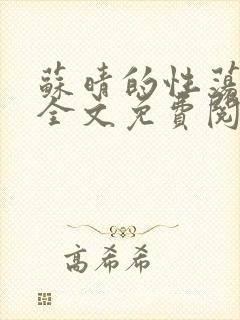 蘇晴的性蕩
全文免費閱
高希希